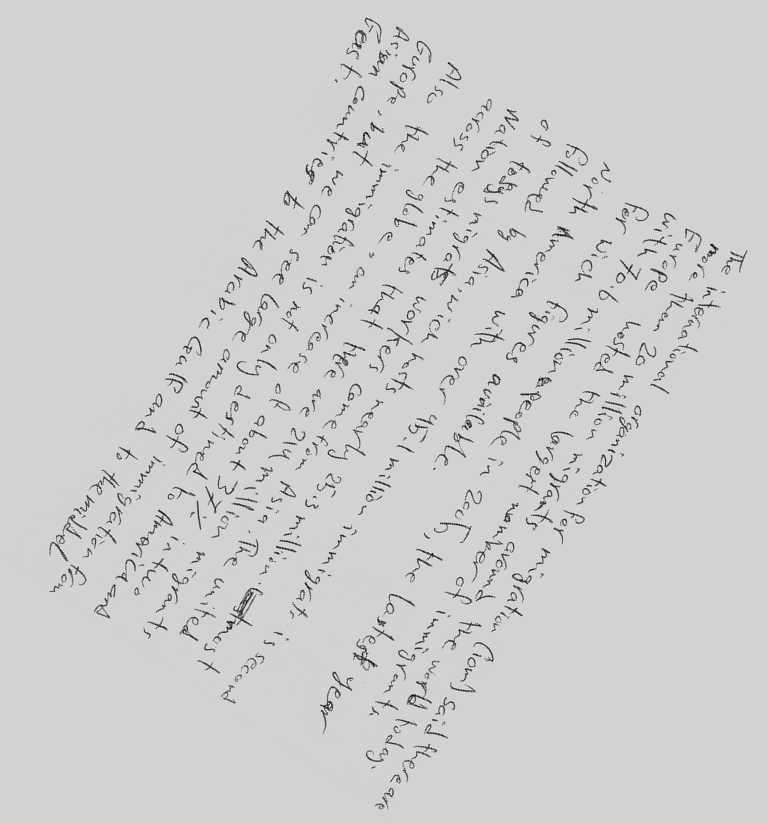 The international organization for migration (iom) said there are
more then 20 million migrants around the world today.
Europe hosted the largest number of immigrants
with 70.6 million people in 2005, the lastest year
for wich figures available.
North America with over 45.1 million immigrats is second
followed by Asia, wich hosts nearly 25.3 million. most
of todays migrats workers come from Asia. The united
Nation estimates that there are 214 million migrants
across the globe, an increase of about 37% in two
Also the immigration is not only destined to America and
Europe, but we can see large amount of immigration from
Asian countries to the Arabic Gulf and to the middel
East.